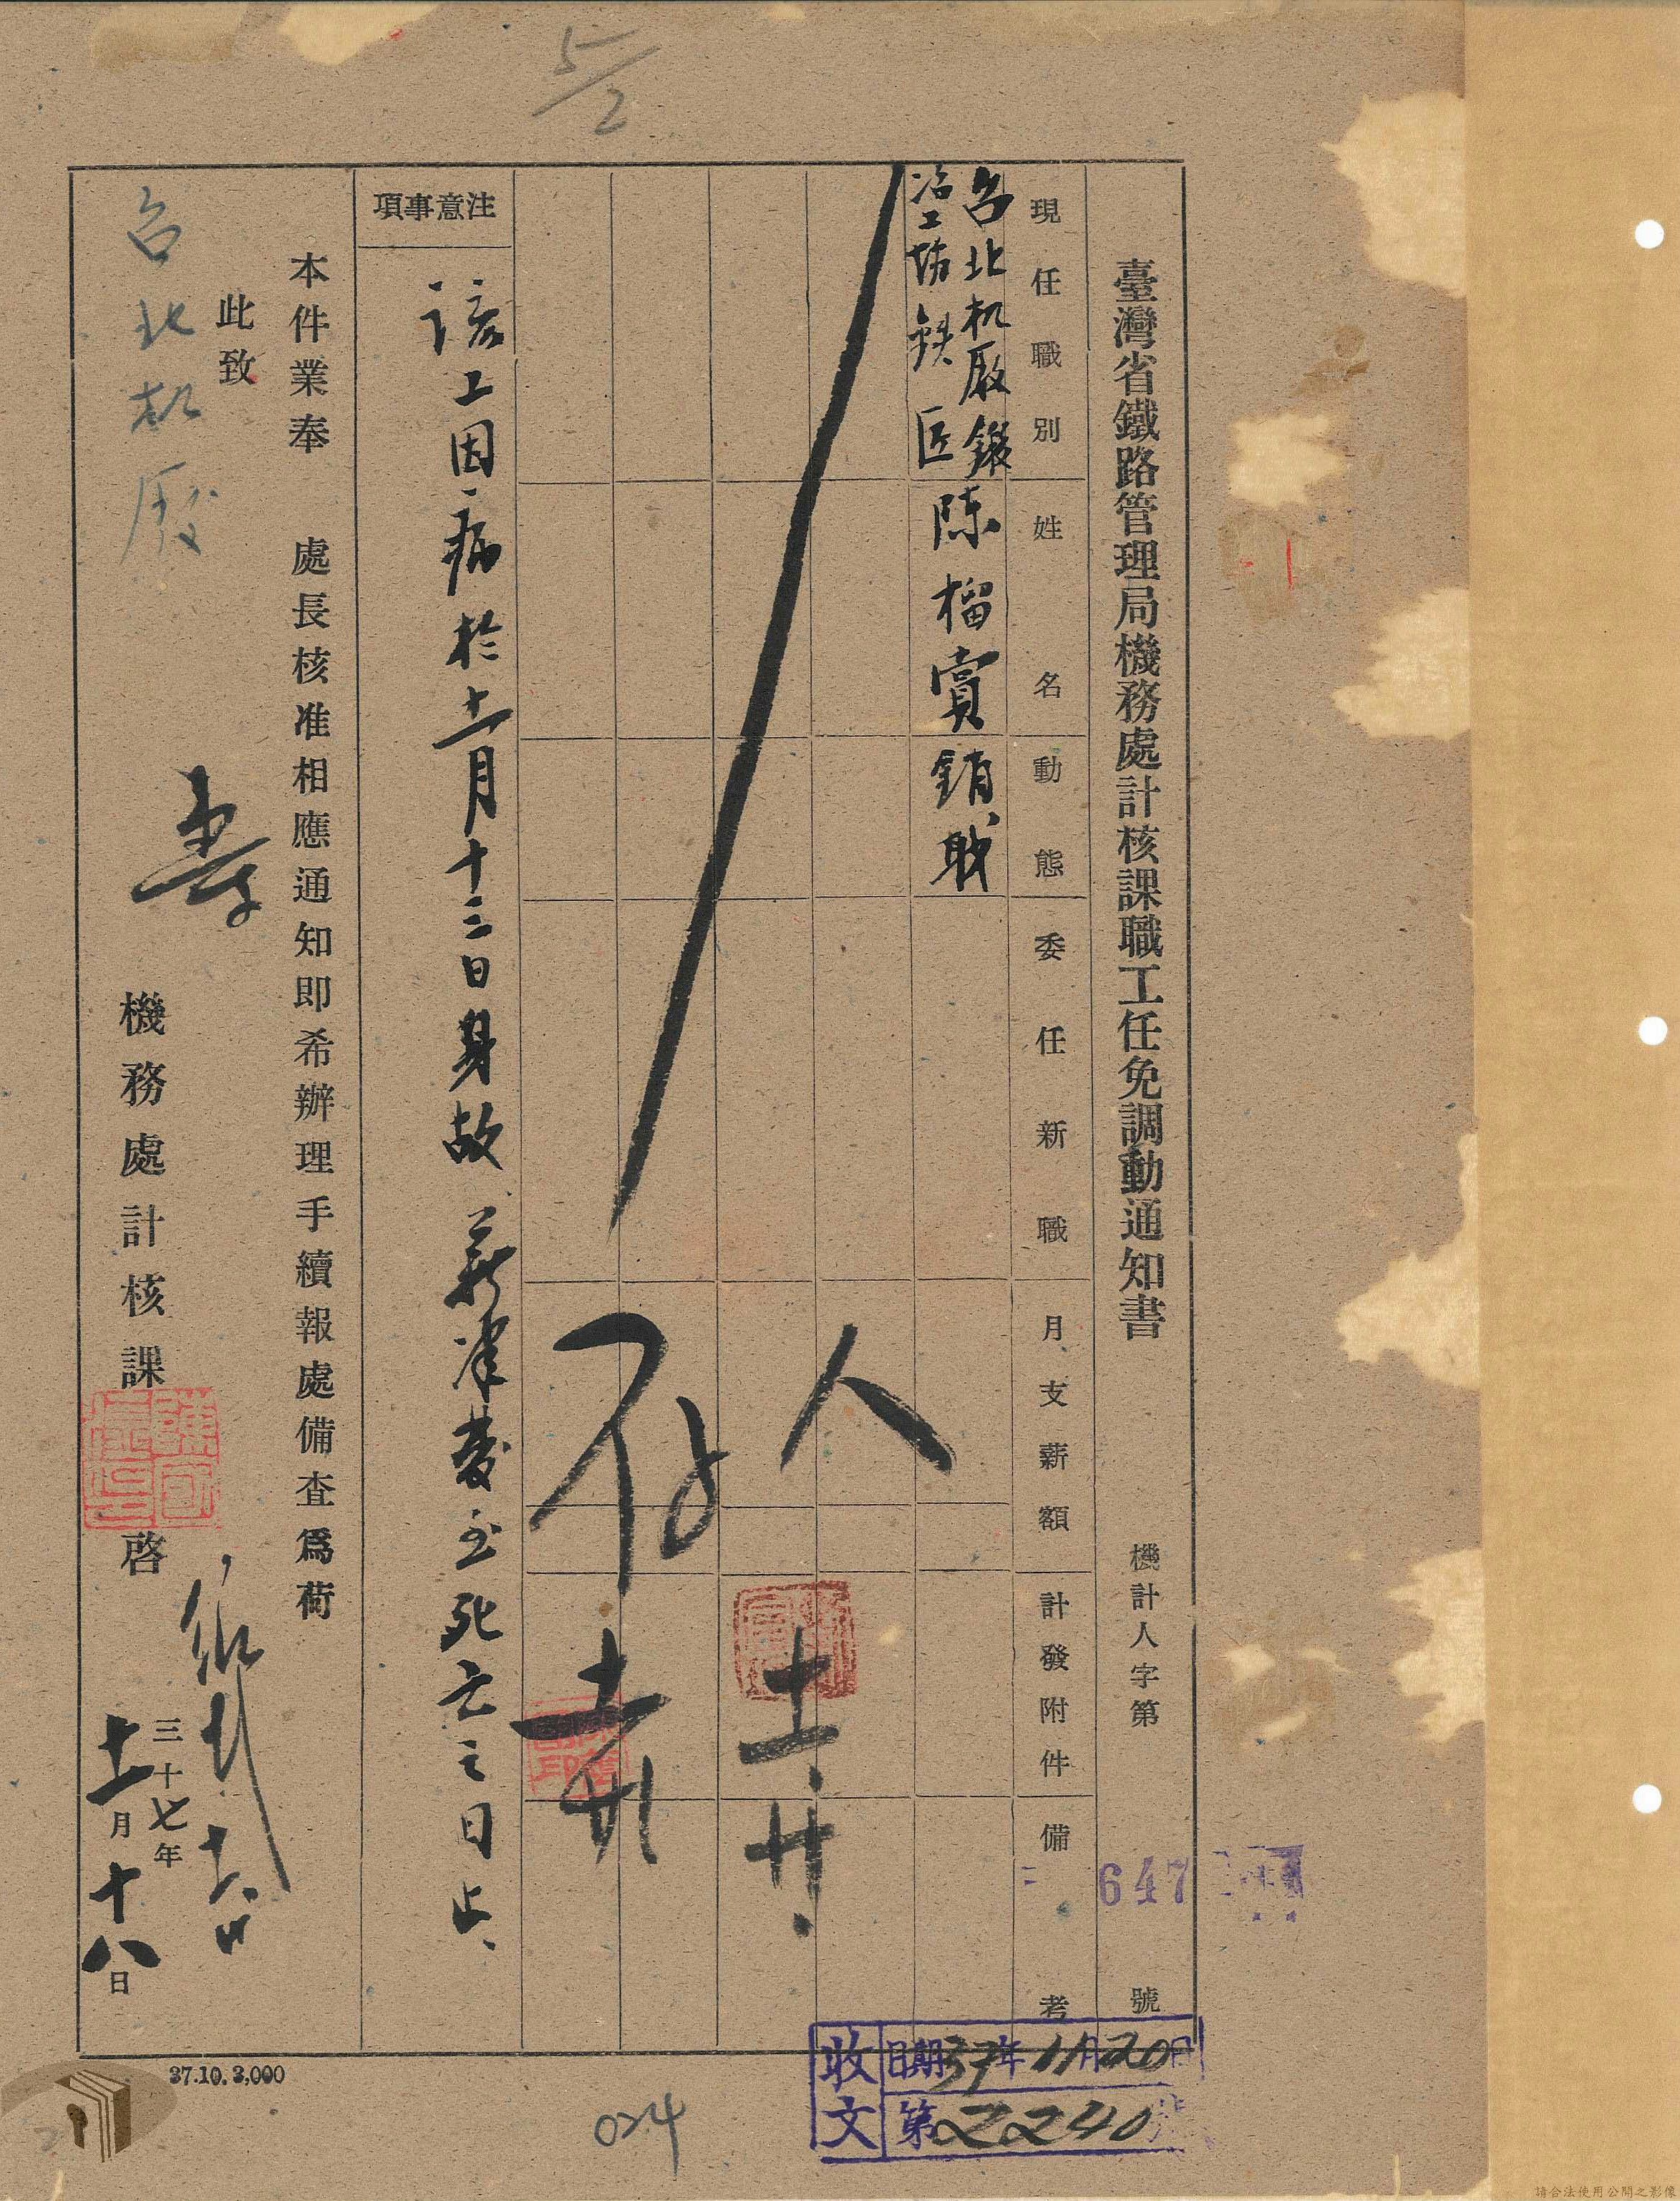 臺灣省鐵路管理局機務處計核課職工任免調動通知書
機計人字第 647 號
現任職別 姓名 動態 委任新職 月支薪額 計發附件 備考
台北机厰鍛
冶工坊鉄匠 陈榴賞 銷職
人
十一.廿.
存
注意事項
该工因病於十一月十三日身故薪津發至死亡之日止、
本件業奉 處長核准相應通知即希辦理手續報處備查爲荷
此致
台北机厰
機務處計核課 啓
三十七年
十一月十八日
收文
日期37年11月20日
第2240
37.10.3,000
024
5/2
請合法使用公開之影像